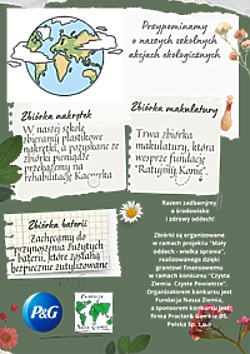 Przypominamy
o naszych szkolnych
akcjach ekologicznych
Zbiórka nakrętek
W naszej szkole
zbieramy plastikowe
nakrętki, a pozyskane ze
zbiórki pieniądze
przekażemy na
rehabilitację Kacperka
Zbiórka makulatury
Trwa zbiórka
makulatury, która
wesprze fundację
"Ratujmy Konie".
Zbiórka baterii
Zachęcamy do
przynoszenia zużytych
baterii, które zostaną
bezpiecznie zutylizowane
Razem zadbajmy
o środowisko
i zdrowy oddech!
Zbiórki są organizowane
w ramach projektu "Mały
oddech - wielka sprawa"
realizowanego dzięki
grantowi finansowemu
w ramach konkursu "Czysta
Ziemia, Czyste Powietrze".
Organizatorem konkursu jest
Fundacja Nasza Ziemia,
a sponsorem konkursu jest
firma Procter& Gamble DS
Polska Sp. z o.o
P&G
Fundacja
Nasza Ziemia